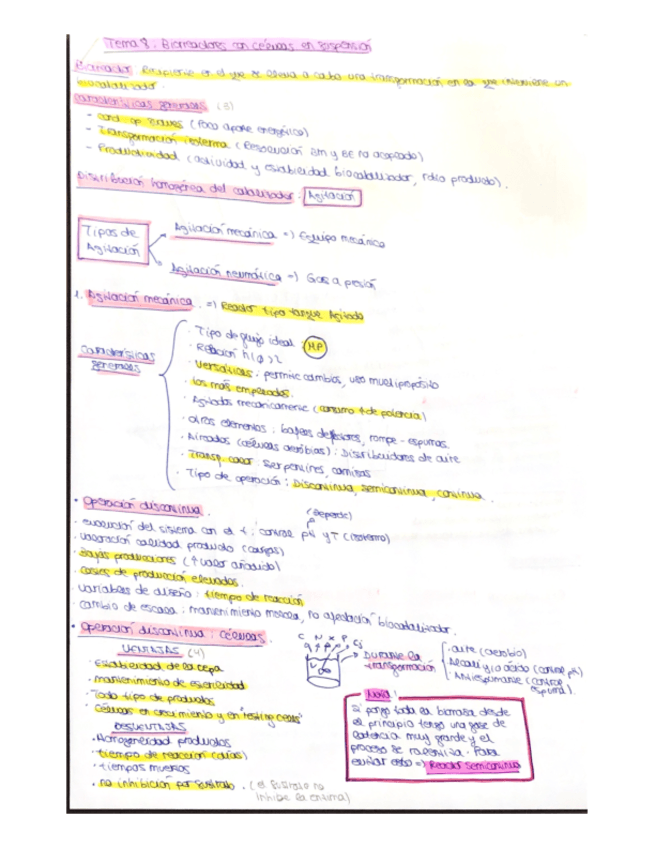 Tema 8. Biorreactores con células en suspensión
Biorreactor. Recipiente en el que se lleva a cabo una transformación en la que interviene un
biocatalizador.
Características generales (3)
- cond op suaves (Poco aporte energético)
- Transformación isoterma (Resolución BM y BE no acoplado)
- Productividad (actividad y estabilidad biocatalizador, rdto producto).
Distribución homogénea del catalizador: Agitación
Tipos de Agitación
Agitación mecánica => Equipo mecánico
Agitación neumática => Gas a presión
1. Agitación mecánica. => Reactor tipo tanque Agitado
Características generales
· Tipo de flujo ideal: MP
· Relación h/φ > 2
· Versátiles: permite cambios, uso multipropósito
· los más empleados.
· Agitados mecánicamente (consumo ↑ de potencia)
· otros elementos: bafles deflectores, rompe-espumas.
· Aireados (células aerobias): Distribuidores de aire
· Transp. calor: serpentines, camisas
· Tipo de operación: Discontinua, semicontinua, continua.
• Operación discontinua.
(depende)
· evolución del sistema con el t: control pH y T (isotermo)
· valoración calidad producto (cargas)
· Bajas producciones (↑ valor añadido)
· costes de producción elevados.
· variables de diseño: tiempo de reacción
· cambio de escala: mantenimiento mezcla, no afectación biocatalizador.
• Operación discontinua: células.
VENTAJAS (4)
· Estabilidad de la cepa
· mantenimiento de esterilidad
· Todo tipo de productos
· Células en crecimiento y en "resting cells"
DESVENTAJAS
· Homogeneidad productos
· tiempo de reacción (días)
· tiempos muertos
· no inhibición por sustrato. (el sustrato no
inhibe la enzima)
C N X P Cj
V
Durante la transformación
· aire (aerobio)
· Álcali y/o ácido (control pH)
· Antiespumante (control
espuma).
Nota!
Si pongo toda la biomasa desde
el principio tengo una fase de
latencia muy grande y el
proceso se ralentiza. Para
evitar esto => Reactor semicontinuo